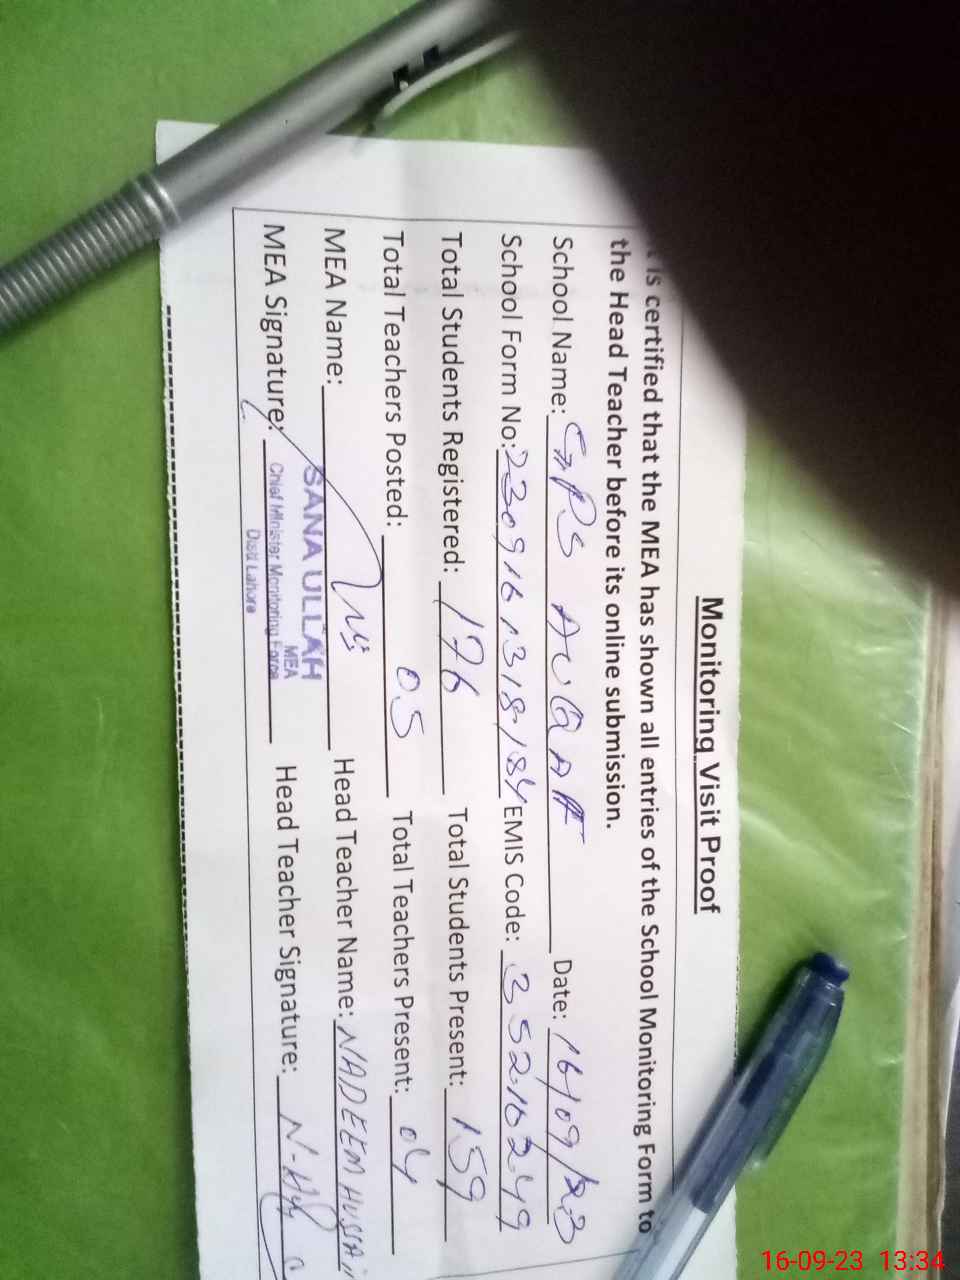 Monitoring Visit Proof
is certified that the MEA has shown all entries of the School Monitoring Form to
the Head Teacher before its online submission.
School Name: GPS AUQAF Date: 16/09/23
School Form No: EMIS Code: 35210249
Total Students Registered: 176 Total Students Present: 159
Total Teachers Posted: 05 Total Teachers Present: 04
MEA Name: Head Teacher Name: NADEEM HUSSAIN
SANA ULLAH
MEA
MEA Signature: Head Teacher Signature:
Chief Minister Monitoring Force
Distt Lahore
16-09-23 13:34